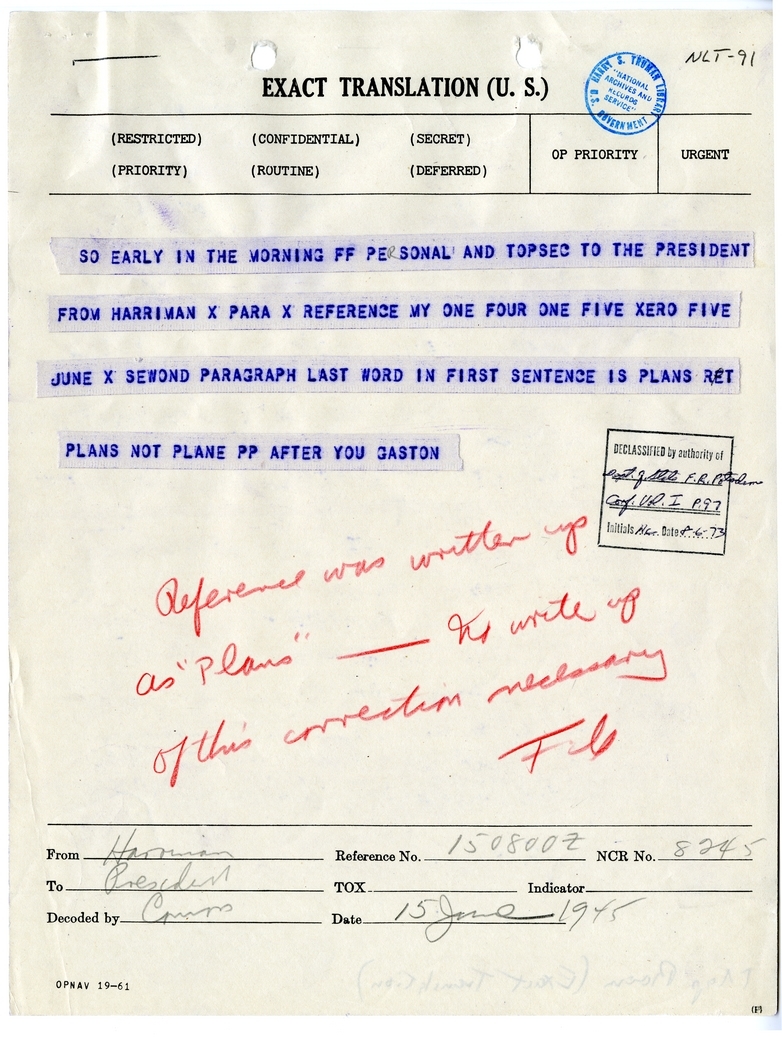 NLT-91
EXACT TRANSLATION (U. S.)
HARRY S. TRUMAN LIBRARY
"NATIONAL
ARCHIVES AND
RECORDS
SERVICE"
U.S. GOVERNMENT
(RESTRICTED) (CONFIDENTIAL) (SECRET)
(PRIORITY) (ROUTINE) (DEFERRED)
OP PRIORITY URGENT
SO EARLY IN THE MORNING FF PERSONAL AND TOPSEC TO THE PRESIDENT
FROM HARRIMAN X PARA X REFERENCE MY ONE FOUR ONE FIVE XERO FIVE
JUNE X SEWOND PARAGRAPH LAST WORD IN FIRST SENTENCE IS PLANS RET
PLANS NOT PLANE PP AFTER YOU GASTON
DECLASSIFIED by authority of
Dept. of State F.R. Potsdam
Conf. Vol. I P.97
Initials Date 8-6-73
Reference was written up
as "Plans" — No write up
of this correction necessary
From Harriman Reference No. 150800Z NCR No. 8245
To President TOX Indicator
Decoded by Connors Date 15 June 1945
OPNAV 19-61
(F)